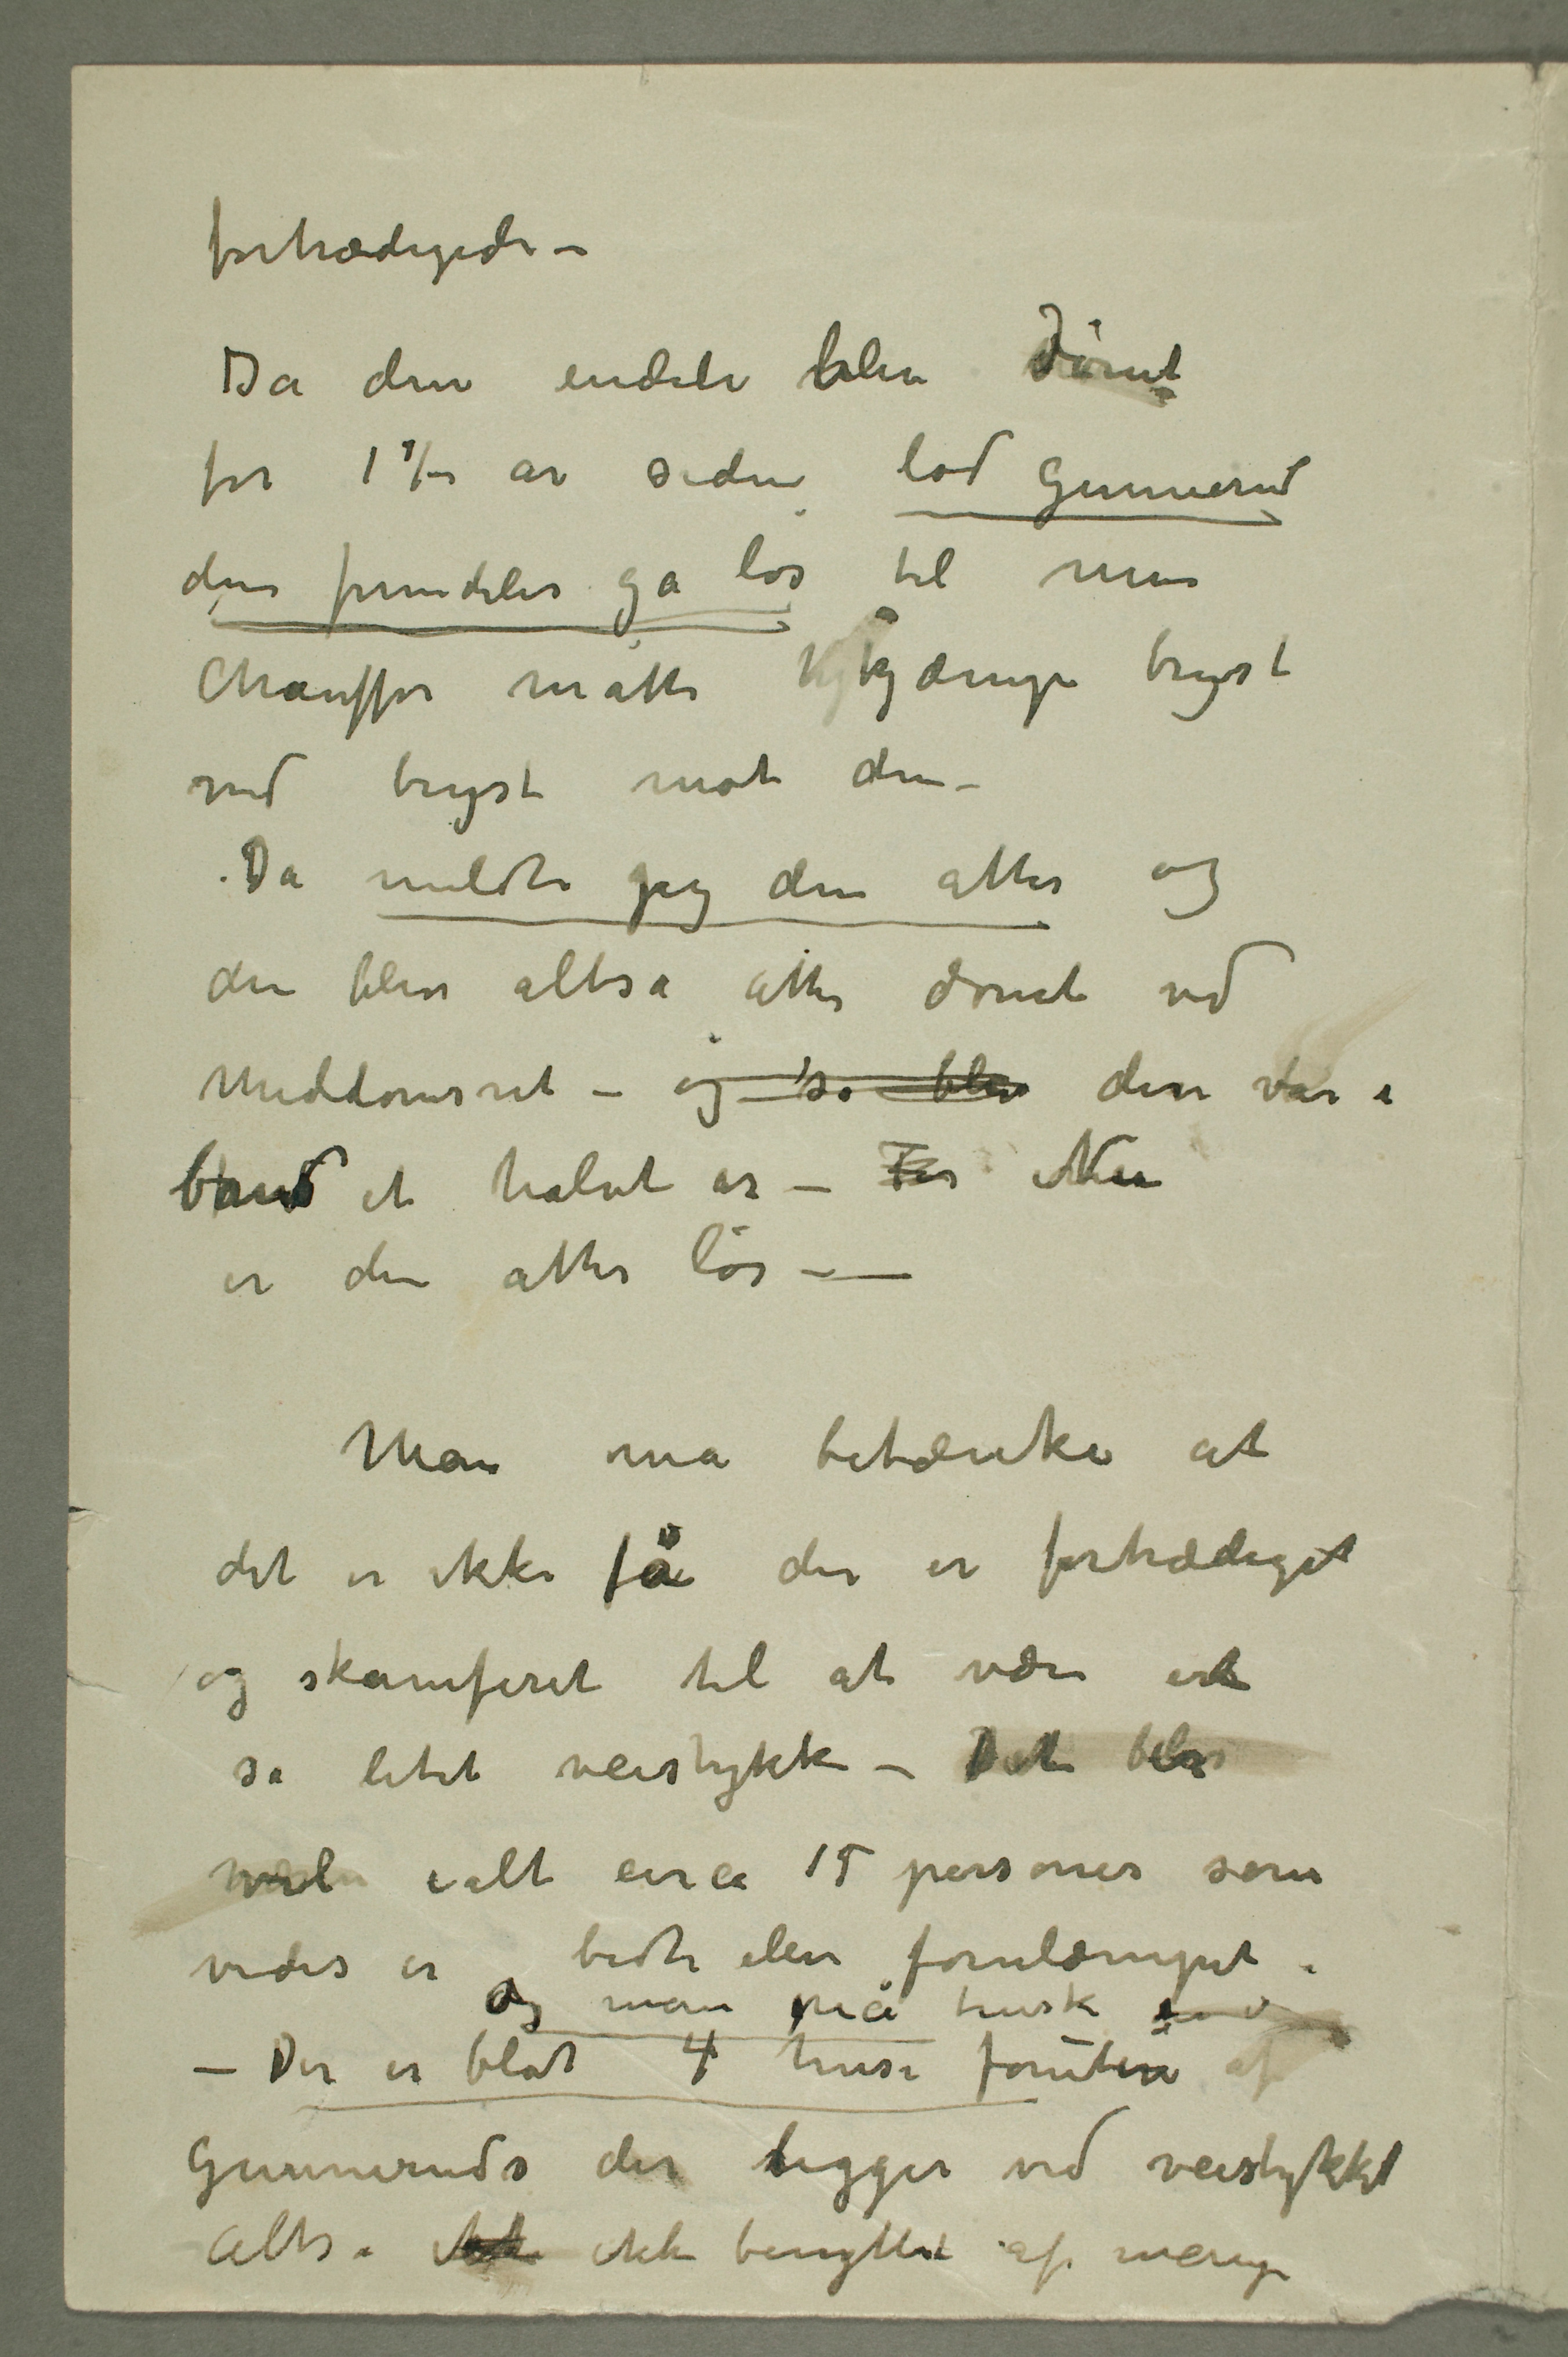 fortrædigede –
Da den endeli blev dömt
for 1 ½ år siden lod Gunnerud
den fremdeles gå løs til min
Chauffør måtte kjæmpe bryst
mod bryst mot den –
Da meldte jeg den atter og
den blev altså atter dömt ved
Meddomsret – og så blev den var i
bånd et halvt år – For Nu
er den atter løs – —
Man må betænke at
det er ikke få der er fortrædiget
og skamferet til at være et
så litet veistykke – Det blir
vel ialt circa 15 personer som
vides er bidte eller forulæmpet.
Og man må huske
– Der er blot 4 huse foruten
Gunneruds der ligger ved veistykket
Altså ikke benyttet af mange